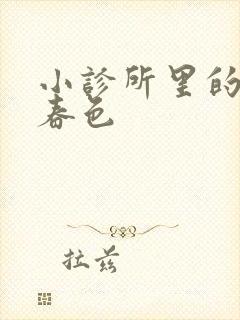 小診所里的
春色
拉兹